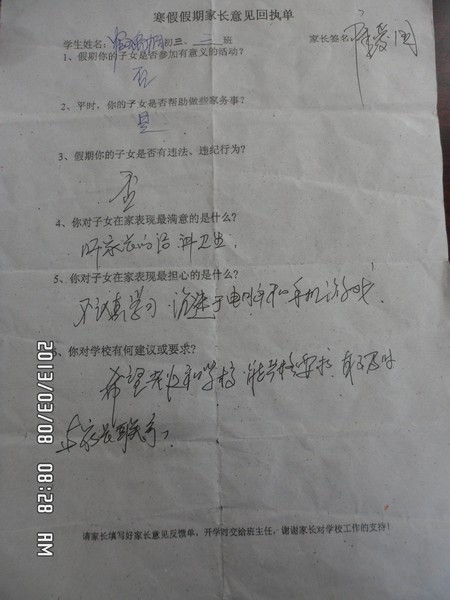 寒假假期家长意见回执单
学生姓名: 初三、三 班 家长签名:
1、假期你的子女是否参加有意义的活动?
否
2、平时,你的子女是否帮助做些家务事?
是
3、假期你的子女是否有违法、违纪行为?
否
4、你对子女在家表现最满意的是什么?
听家长的话 讲卫生.
5、你对子女在家表现最担心的是什么?
不认真学习 沉迷于电脑和手机游戏.
6、你对学校有何建议或要求?
希望老师和学校 要求
与家长联系
请家长填写好家长意见反馈单,开学时交给班主任,谢谢家长对学校工作的支持!
2013/03/08 08:28 AM